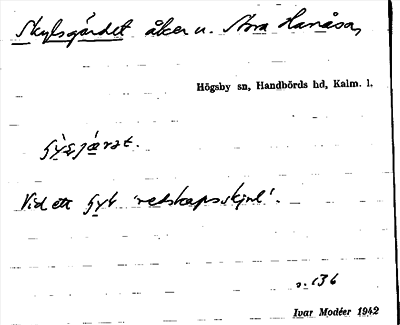 Skylsgärdet åker u. Stora Hanåsa,
Högsby sn, Handbörds hd, Kalm. l.
Vid ett ʃyl 'redskapsskjul'.
s. 136
Ivar Modéer 1942